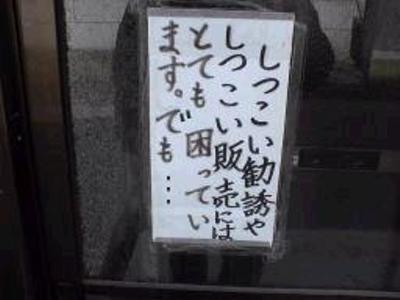 しつこい勧誘や
しつこい販売には
とても困ってい
ます。でも…